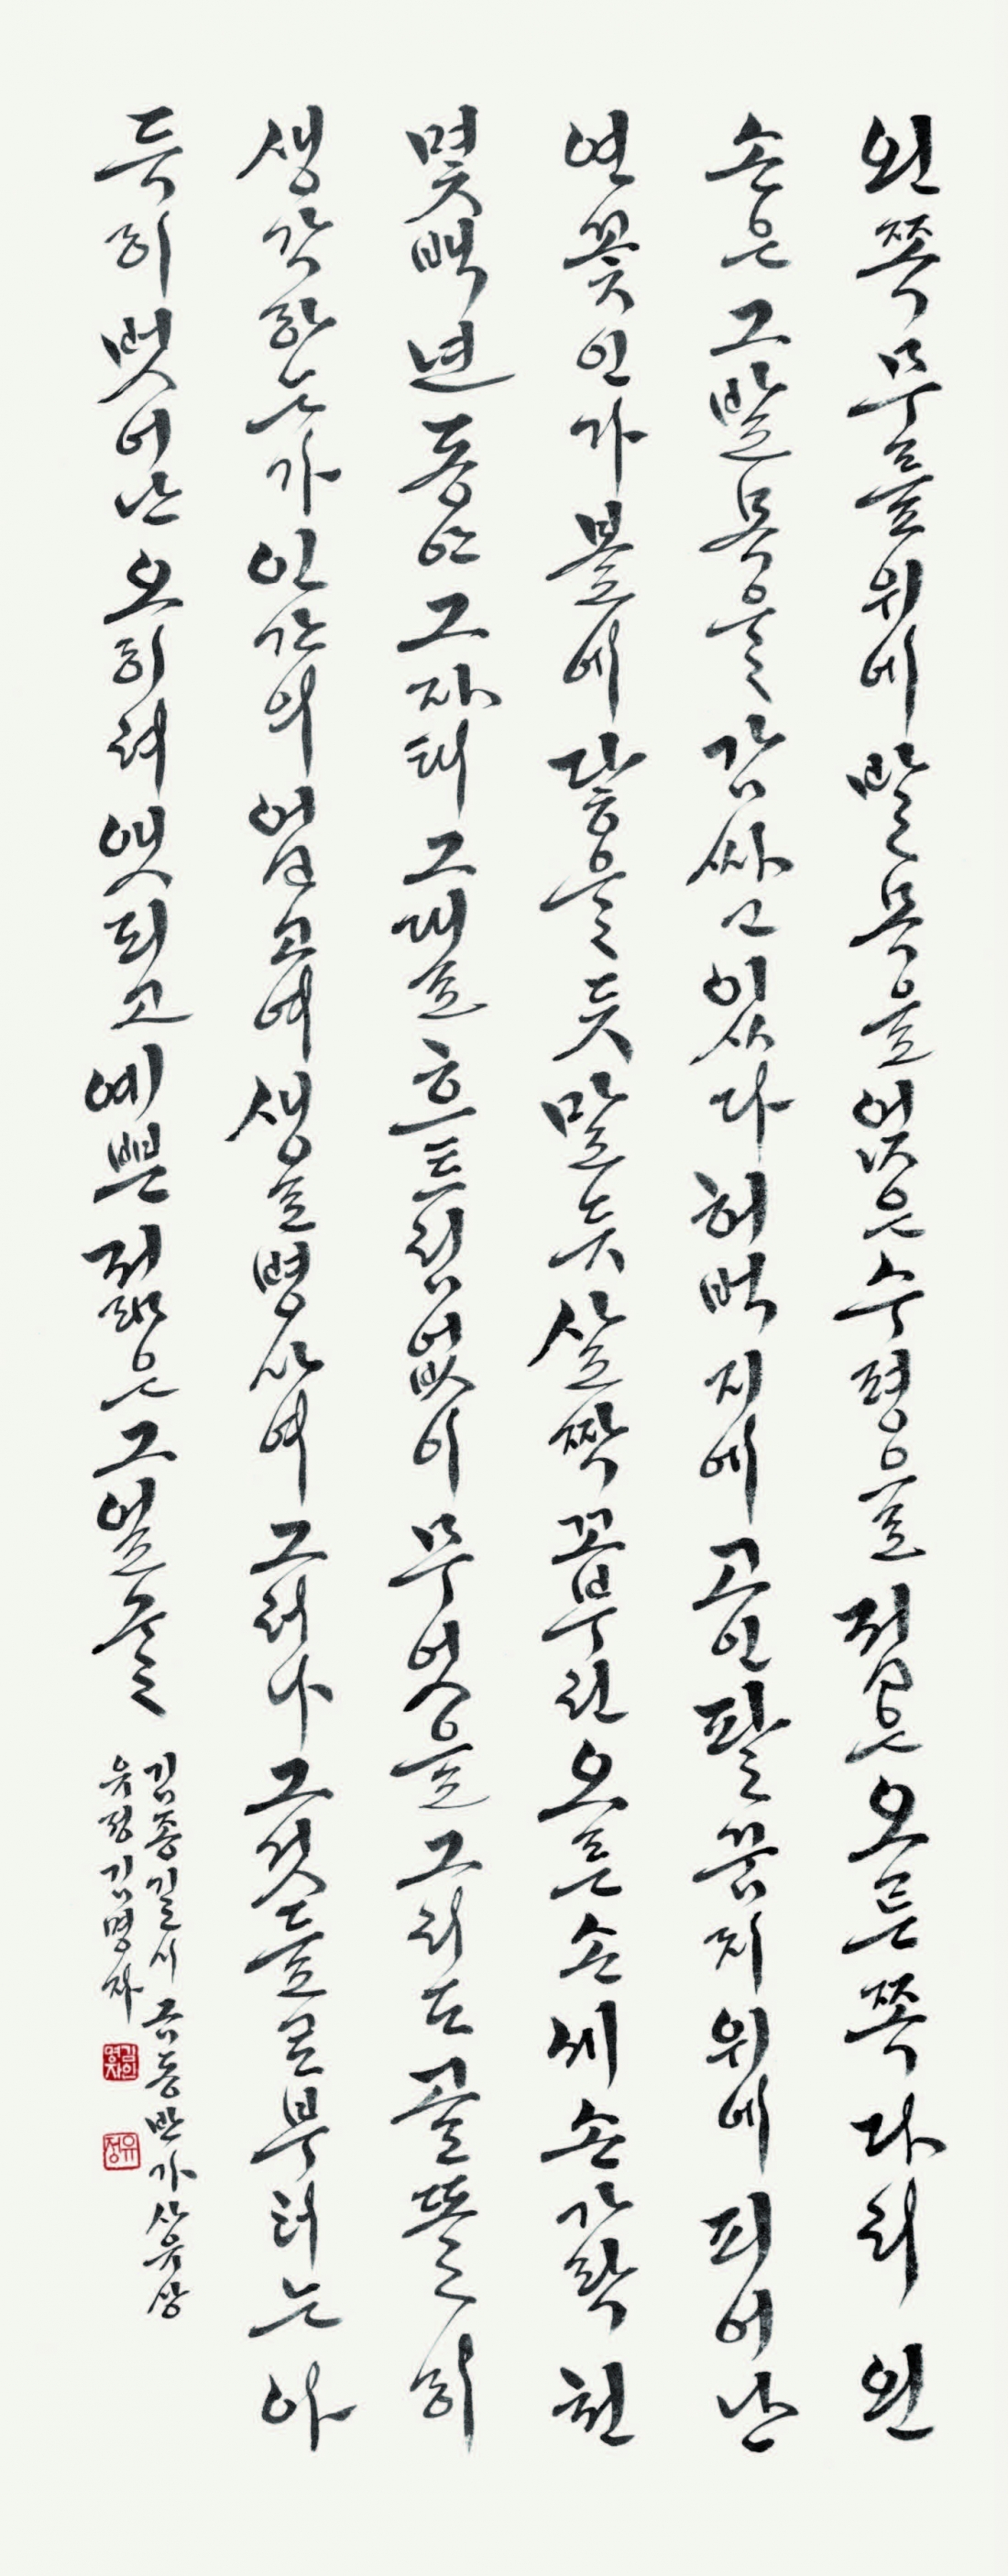 왼쪽 무릎 위에 발목을 얹은 수평을 접은 오른쪽 다리 왼
손은 그 발목을 감싸고 있다 허벅지에 고인 팔꿈치 위에 피어난
연꽃인가 볼에 닿을 듯 말 듯 살짝 꼬부린 오른손 세 손가락 천
몇백 년 동안 그 자태 그대로 흐트러짐 없이 무엇을 그리도 골똘히
생각하는가 인간의 업고여 생로병사여 그러나 그것들로부터는 아
득히 벗어난 오히려 앳되고 예쁜 젊은 그 얼굴
김종길 시 금동반가사유상
유정 김명자